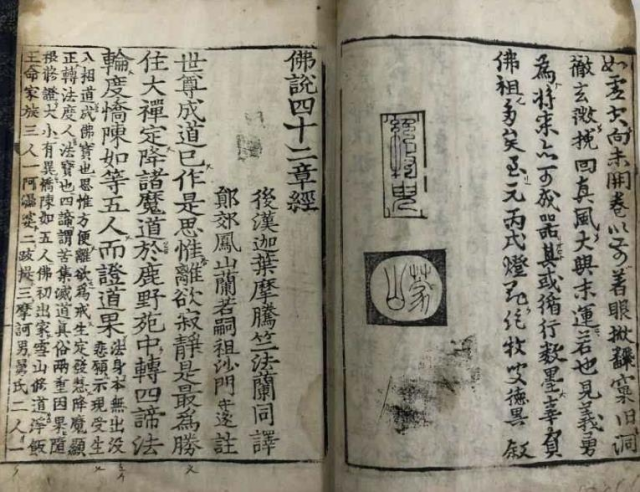 向未開卷以前著眼掀翻窠臼洞
徹玄微挽回真風大興末運若也見義勇
為將來亦可成其或循行數墨辜負
佛祖多矣至元丙戌燈絕牧叟德異敘
絕牧叟
蒙山
佛說四十二章經
後漢迦葉摩騰竺法蘭同譯
鄭郊鳳山蘭若嗣祖沙門守遂註
世尊成道已作是思惟離欲寂靜是最為勝
住大禪定降諸魔道於鹿野苑中轉四諦法
輪度憍陳如等五人而證道果
法身本無出没
悲願示現受生
入相道成佛寶也思惟方便離欲為戒生定發慧降魔顯
正轉法度人法寶也四諦謂苦集滅道真俗兩重因果隨
根所證大小有異憍陳如五人佛初出家雪山修道淨飯
王命家族三人一阿濕婆二跋提三摩訶男舅氏二人一